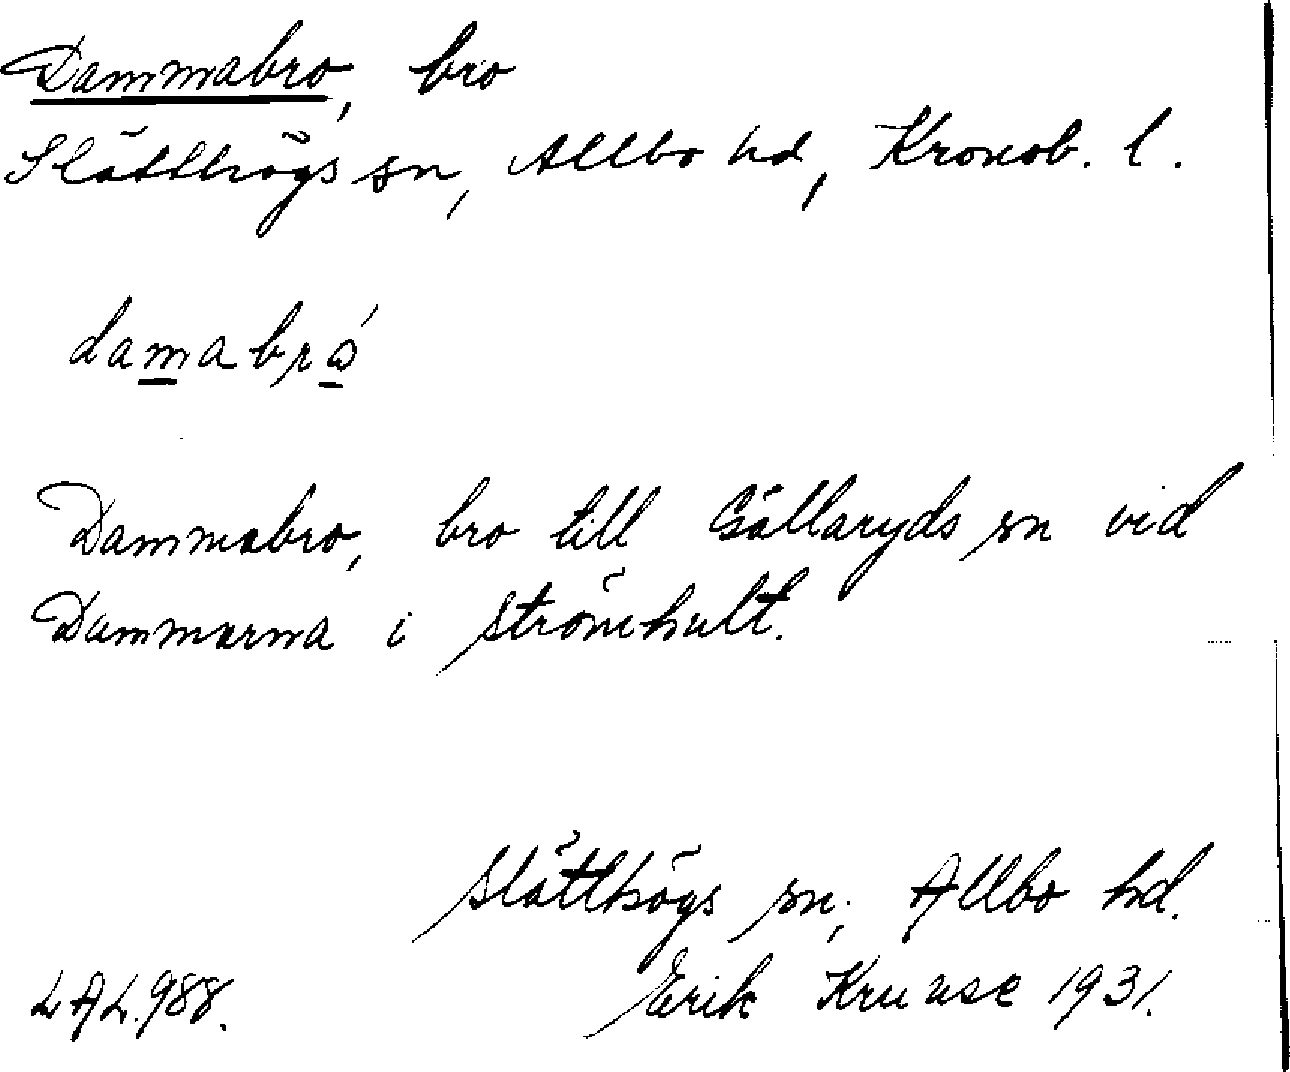 Dammabro, bro
Slätthögs sn, Allbo hd, Kronob. l.
damabró
Dammabro, bro till Gällaryds sn vid
Dammarna i Strömhult.
Slätthögs sn, Allbo hd.
LAL.988. Erik Kruuse 1931.